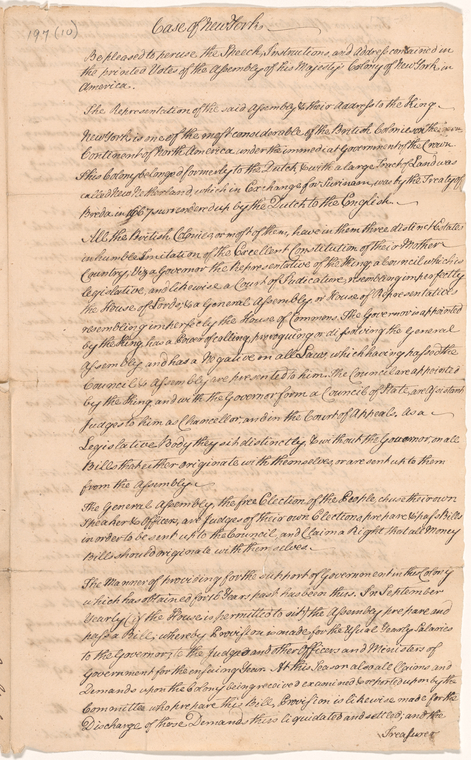 197 (10)
Case of New York.
Be pleased to peruse the Speech, Instructions, and Address contained in
the printed Votes of the Assembly of his Majesty's Colony of New York in
America.
The Representation of the said Assembly & their Address to the King.
New York is one of the most considerable of the British Colonies on the
Continent of North America under the immediate Government of the Crown
This Colony belonged formerly to the Dutch & with a large Tract of Land was
called New Netherland, which in Exchange for Surinam, was by the Treaty of
Breda in 1667 surrendered up by the Dutch to the English.
All the British Colonies or most of them, have in them three distinct Estates
in humble Imitation of the Excellent Constitution of their Mother
Country, Viz a Governor the Representative of the King, a Council which is
legislative, and likewise a Court of Judicature, resembling imperfectly
the House of Lords, & a General Assembly or House of Representatives
resembling imperfectly the House of Commons. The Governor is appointed
by the King, has a Power of calling, proroguing or dissolving the General
Assembly and has a Negative on all Laws, which having passed the
Council & Assembly are presented to him. The Council are appointed
by the King and with the Governor form a Council of State, are Assistant
Judges to him as Chancellor, and in the Court of Appeals. As a
Legislative Body they sit distinctly, & without the Governor, on all
Bills that either originate with themselves, or are sent up to them
from the Assembly.
The General Assembly, the free Election of the People, chuse their own
Speaker & Officers, are Judges of their own Elections, prepare & pass Bills
in order to be sent up to the Council, and Claim a Right that all Money
Bills should originate with themselves.
The Manner of providing for the support of Government in this Colony
which has obtained for Years past has been thus. In September
Yearly (if the House is permitted to sit) the Assembly prepare and
pass a Bill, whereby Provision is made for the Usual Yearly Salaries
to the Governor, to the Judges and other Officers and Ministers of
Government for the ensuing Year. At this Season also all Claims and
Demands upon the Colony being received examined & reported upon by the
Committee who prepare this Bill, Provision is likewise made for the
Discharge of those Demands thus liquidated and settled; and the
Treasurer